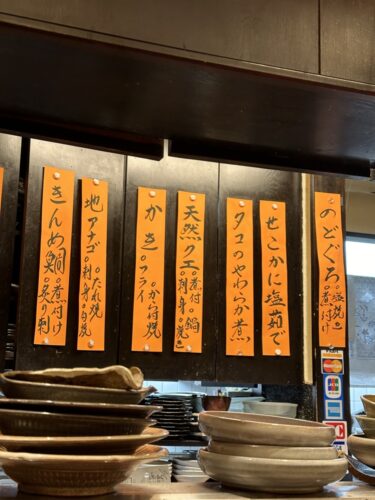 のどぐろ 塩焼 煮付け
せこかに塩茹で
タコのやわらか煮
天然クエ 煮付 鍋 刺身 焼
かき フライ から付焼
地アナゴ たれ焼 刺身 白焼
きんめ鯛 煮付け 炙り刺
JCB